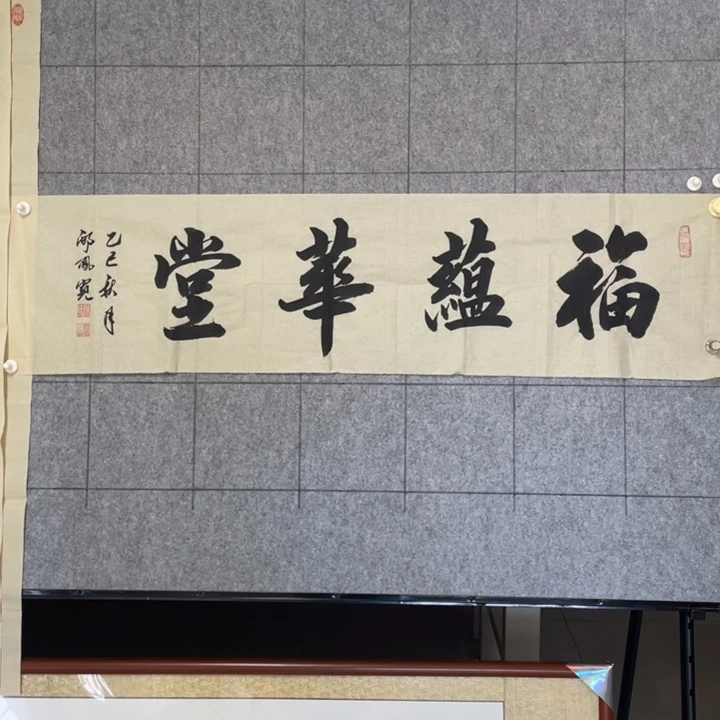 福蘊華堂
乙巳秋月
邢風寬